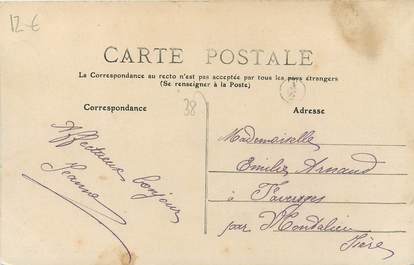 12-€
CARTE POSTALE
La Correspondance au recto n'est pas acceptée par tous les pays étrangers
(Se renseigner à la Poste)
Correspondance
38
Adresse
Affectueux bonjour
Jeanne
Mademoiselle
Emilie Arnaud
à Faverges
par Montalieu
Isère